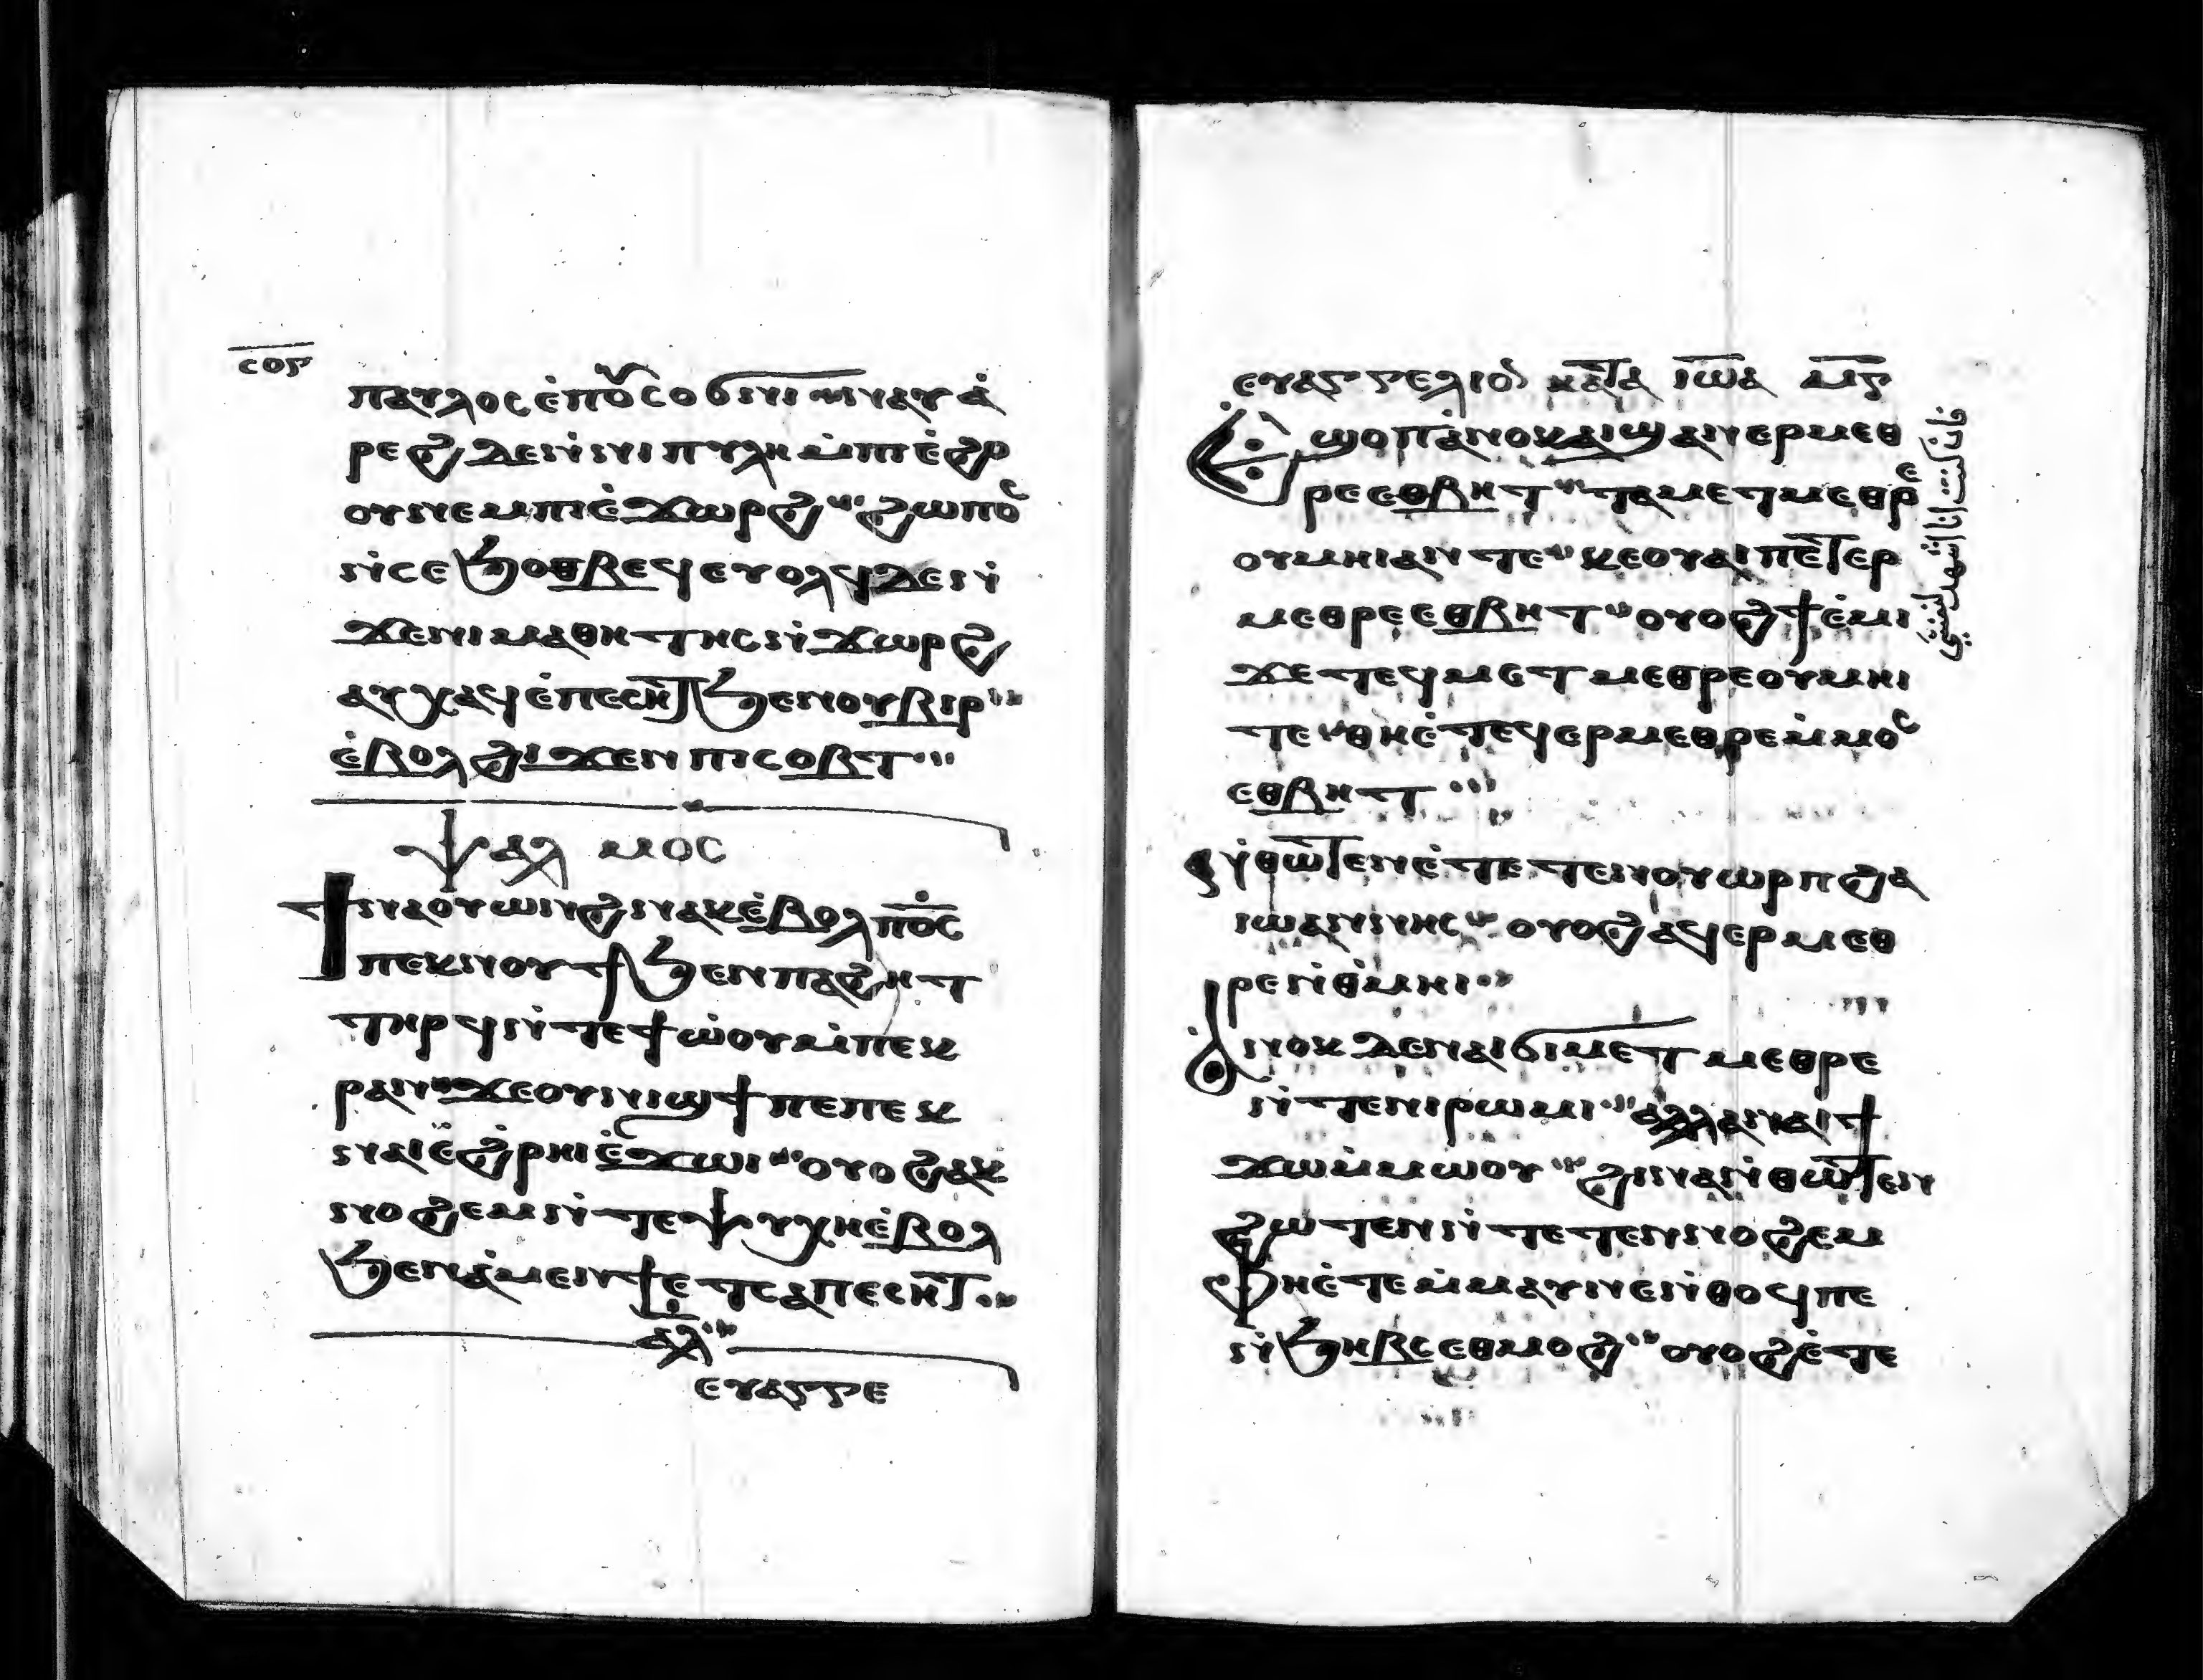 ⲥⲟⲅ
ⲡⲁⲩⲗⲟⲥ ⲉ̇ⲡⲟ̅ⲥⲟϭⲛⲓ ⲛⲁⲩⲁ̇
ⲣⲉϩ ⲇⲉ ⲛ̇ⲛⲓⲡⲩⲗⲏ ⲙ̇ⲡⲓⲉ̇ϩⲟ
ⲟⲩ ⲛⲉⲙ ⲡⲓⲉ̇ϫⲱⲣϩ ϩⲱⲡⲟⲥ
ⲛ̇ⲥⲉϧⲟⲑⲃⲉϥ ⲉⲩⲟⲗϥ ⲇⲉ ⲛ̇
ϫⲉⲛⲓⲙⲁⲑⲏⲧⲏⲥ ⲛ̇ϫⲱⲣϩ
ⲁⲩⲭⲁϥ ⲉ̇ⲡⲉⲥⲏⲧ ϧⲉⲛ ⲟⲩⲃⲓⲣ
ⲉ̇ⲃⲟⲗ ϩⲓϫⲉⲛ ⲡⲓⲥⲟⲃⲧ
ⲯⲁⲗ ⲙⲟⲥ
ϯⲛⲁⲟⲩⲱⲛϩ ⲛⲁⲕ ⲉ̇ⲃⲟⲗ ⲡⲟ̅ⲥ
ⲡⲉⲕⲛⲟⲩϯ ϧⲉⲛ ⲡⲁϩⲏⲧ
ⲧⲏⲣϥ ⲛ̇ⲧⲉϯⲱ̇ⲟⲩ ⲙ̇ⲡⲉⲕ
ⲣⲁⲛ ϫⲉ ⲟⲩⲛⲓϣϯ ⲡⲉ ⲡⲉⲕ
ⲛⲁⲓ ⲉ̇ϩ̇ⲣⲏⲓ ⲉ̇ϫⲱⲓ ⲟⲩⲟϩ ⲁⲕ
ⲛⲟϩⲉⲙ ⲛ̇ⲧⲉⲯⲩⲭⲏ ⲉ̇ⲃⲟⲗ
ϧⲉⲛ ⲁ̇ⲙⲉⲛϯ ⲉⲧⲥⲁⲡⲉⲥⲏⲧ
ⲁⲗ
ⲉⲩⲁⲅⲅⲉ
ⲉⲩⲁⲅⲅⲉⲗⲓⲟⲛ ⲕⲁⲧⲁ ⲓⲱⲁ
ⲉϣⲟⲡ ⲁ̇ⲛⲟⲕ ⲁⲓϣⲁⲛⲉⲣⲙⲉⲑ
ⲣⲉ ⲉⲑⲃⲏⲧ ⲧⲁⲙⲉⲧⲙⲉⲑⲣⲉ
ⲟⲩⲙⲏⲓ ⲁⲛ ⲧⲉ ⲕⲉⲟⲩⲁⲓ ⲡⲉⲧⲉⲣ
ⲙⲉⲑⲣⲉ ⲉⲑⲃⲏⲧ ⲟⲩⲟϩ ϯⲉ̇ⲙⲓ
ϫⲉ ⲧⲉϥⲙⲉⲧⲙⲉⲑⲣⲉ ⲟⲩⲙⲏⲓ
ⲧⲉ ⲑⲏⲉ̇ⲧⲉϥⲉⲣⲙⲉⲑⲣⲉ ⲙ̇ⲙⲟⲥ
ⲉⲑⲃⲏⲧ
ⲛ̇ⲑⲱⲧⲉⲛ ⲉ̇ⲧⲉⲧⲉⲛⲟⲩⲱⲣⲡ ϩⲁ
ⲓⲱⲁⲛⲛⲏⲥ ⲟⲩⲟϩ ⲁϥⲉⲣⲙⲉⲑ
ⲣⲉ ⲛ̇ⲑ̇ⲙⲏⲓ
ⲁⲛⲟⲕ ⲇⲉ ⲛⲁⲓϭⲓⲙⲉⲧⲙⲉⲑⲣⲉ
ⲛ̇ⲧⲉⲛ ⲓⲣⲱⲙⲓ ⲁⲗⲗⲁ ⲛⲁⲓ ϯ
ϫⲱ ⲙ̇ⲙⲱⲟⲩ ϩⲓⲛⲁ ⲛ̇ⲑⲱⲧⲉⲛ
ϩⲱⲧⲉⲛ ⲛ̇ⲧⲉⲧⲉⲛⲛⲟϩⲉⲙ
ⲫⲏⲉ̇ⲧⲉⲙ̇ⲙⲁⲩ ⲛⲉ ⲛ̇ⲑⲟϥ ⲡⲉ
ⲛ̇ϧⲏⲃⲥ ⲉⲑⲙⲟϩ ⲟⲩⲟϩ ⲉ̇ⲧⲉ
فان كنت انا اشهد لنفسي